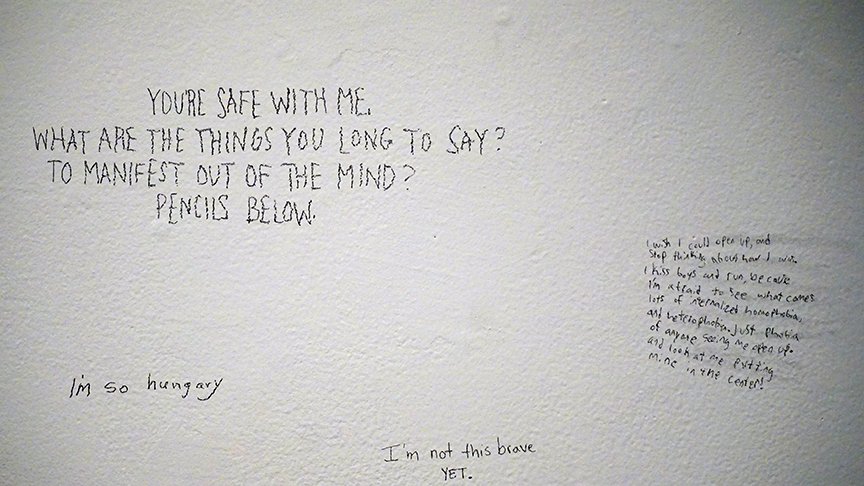 YOU'RE SAFE WITH ME.
WHAT ARE THE THINGS YOU LONG TO SAY?
TO MANIFEST OUT OF THE MIND?
PENCILS BELOW.
I wish I could open up, and
stop thinking about how I
I kiss boys and run, because
I'm afraid to see what comes
lots of internalized homophobia,
and heterophobia. Just phobia
of anyone seeing me open up.
and look at me putting
mine in the center!
I'm so hungary
I'm not this brave
YET.